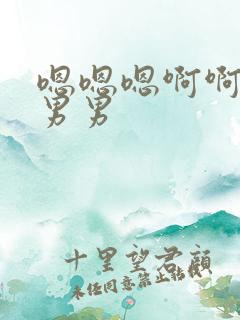 嗯嗯嗯啊啊
男男
十里望君顾
未经同意禁止转载